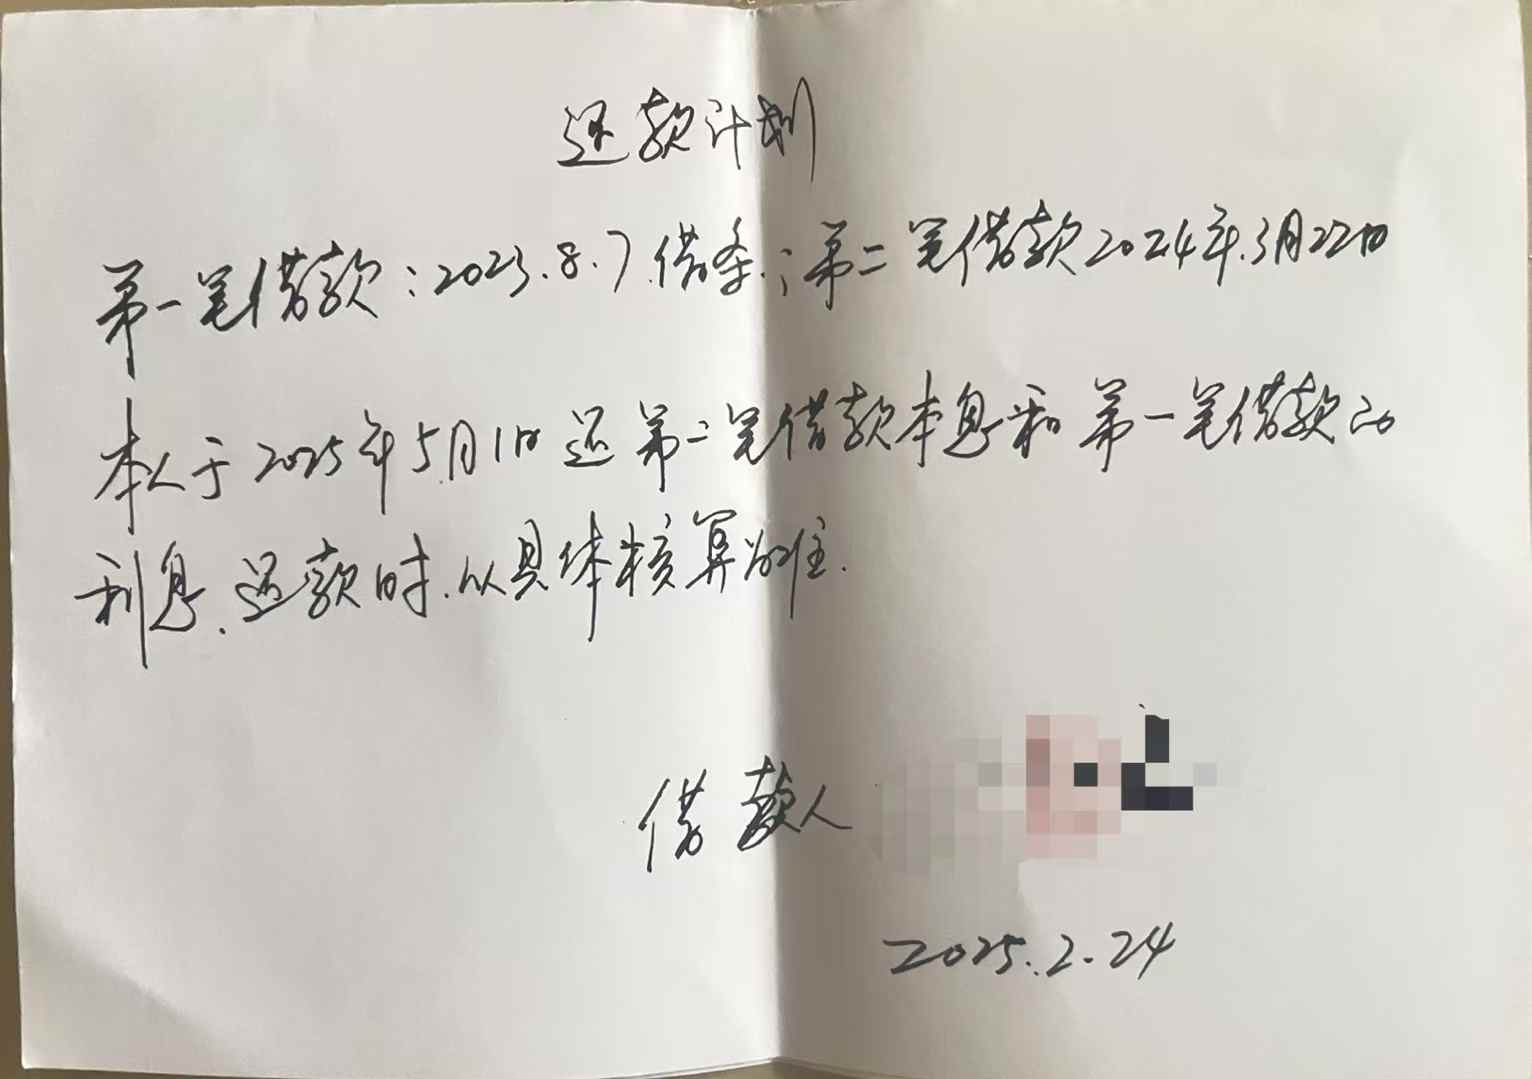 还款计划
第一笔借款:2023.8.7.借条.;第二笔借款2024年.3月22日
本人于2025年5月1日还第二笔借款本息和第一笔借款的
利息.还款时.以具体核算为准.
借款人
2025.2.24